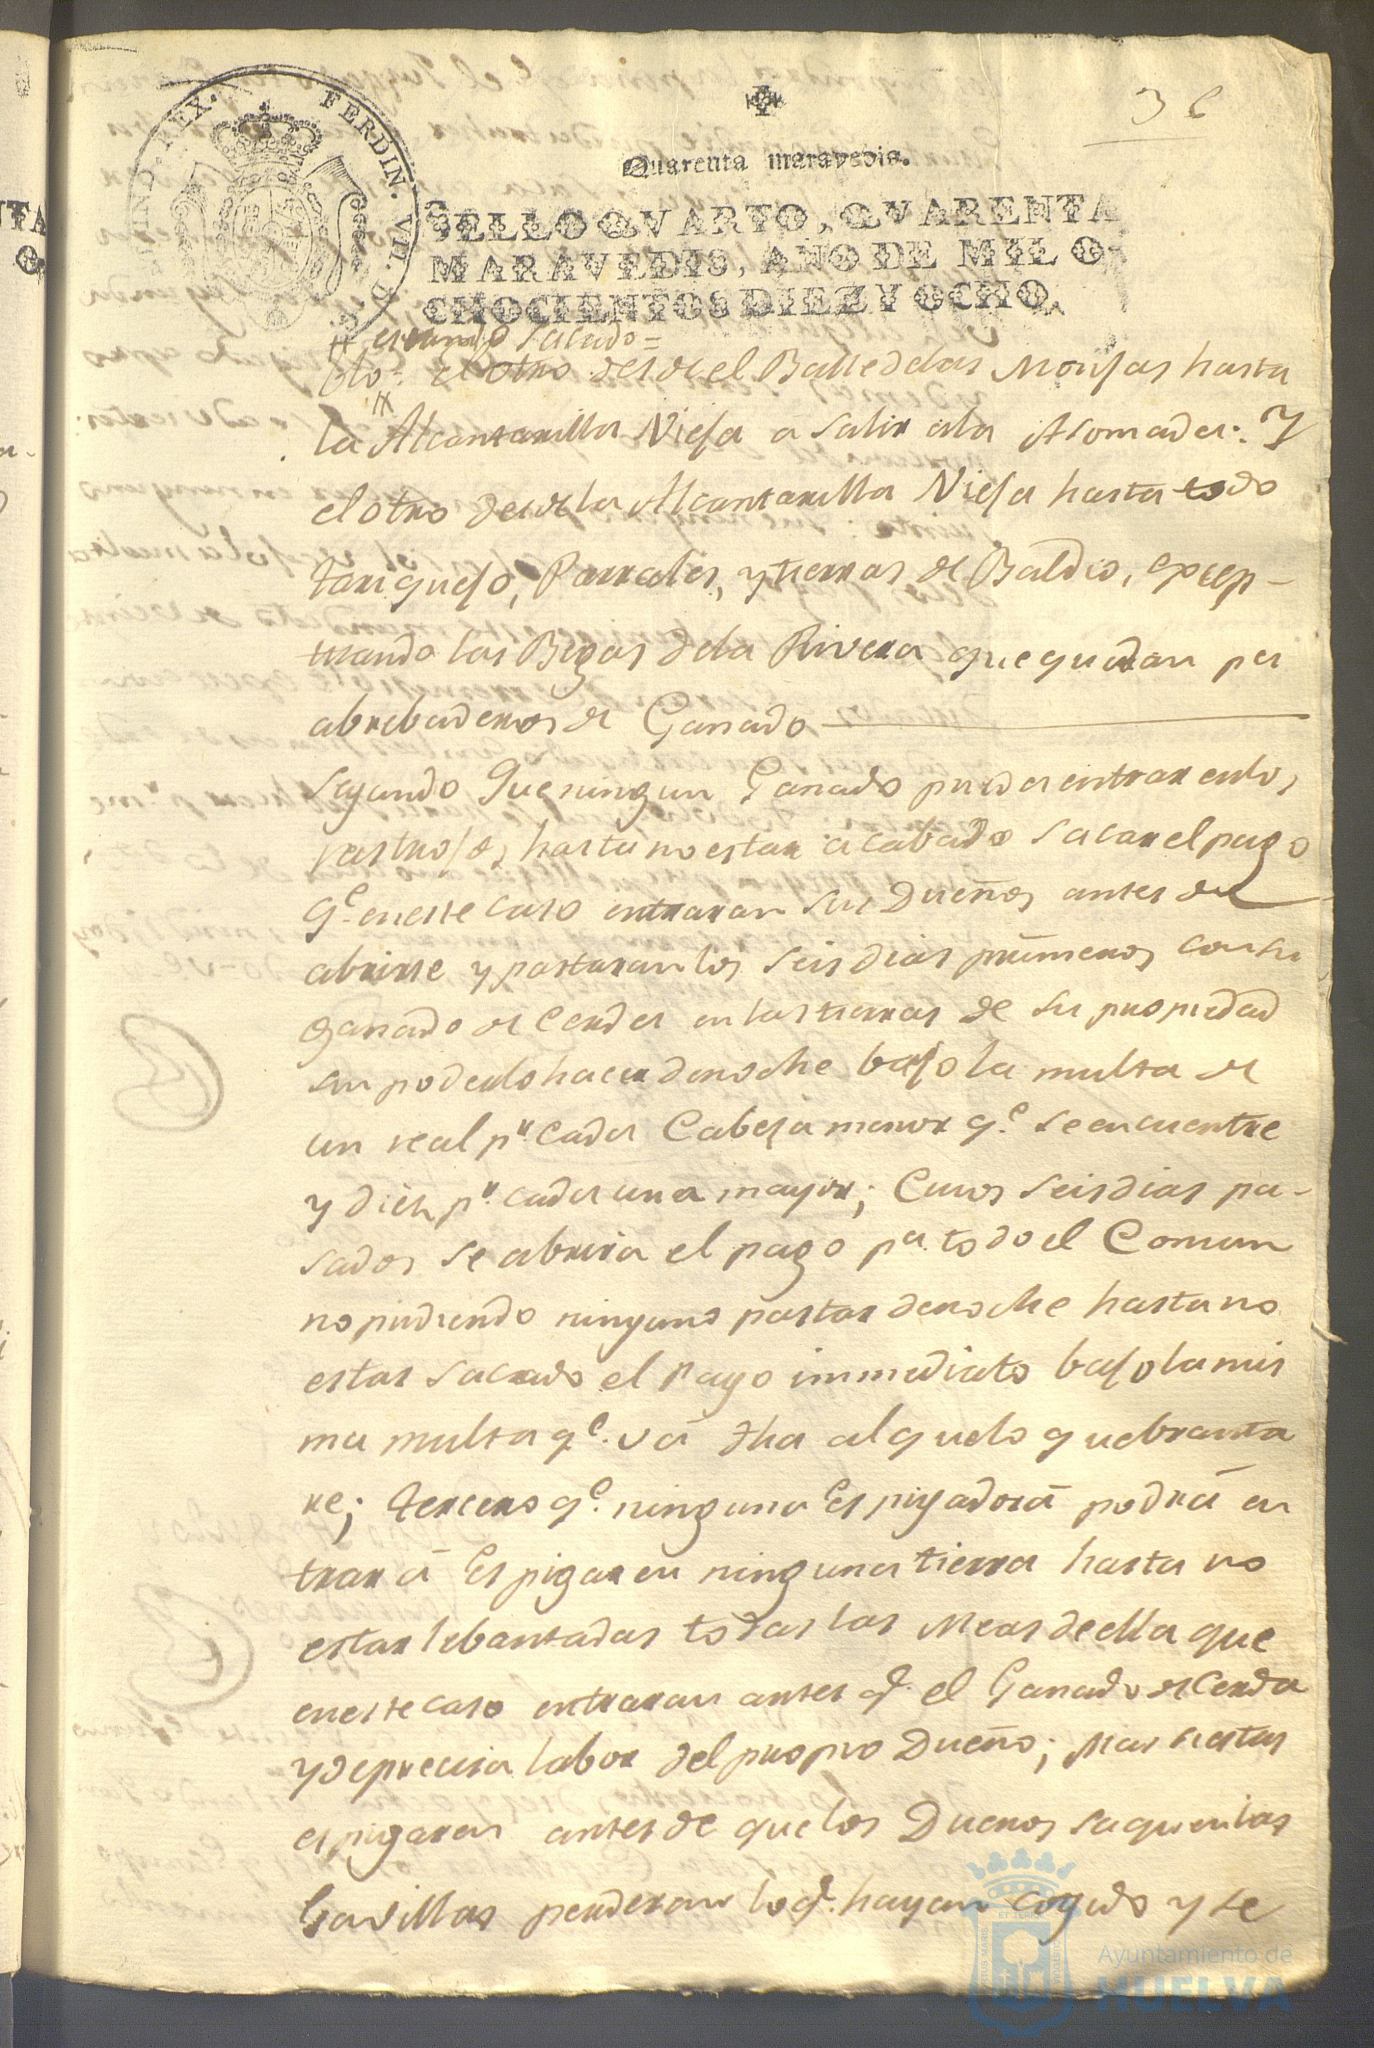 36
Quarenta maravedis.
FERDIN. VII. D.
IND. REX.
SELLO QVARTO, QVARENTA
MARAVEDIS, AÑO DE MIL O-
CHOCIENTOS DIEZ Y OCHO.
estando sacado=
blo= el otro desde el Balle de las Monjas hasta
la Alcantarilla Nieja a salir a la Asomada: Y
el otro desde la Alcantarilla Nieja hasta todo
tariquejo, Parrales, y tierras de Baldio, excep-
tuando las Begas de la Rivera que quedan par
abrebaderos de Ganado
segundo Que ningun Ganado pueda entrar en los
rastrojos, hasta no estar acabado sacar el pago
qe. en este caso entraran sus Dueños antes de
abrirse y pastaran los seis dias primeros con su
ganado de Cerda en las tierras de su propiedad
sin poderlo hacer de noche bajo la multa de
un real pr. cada Cabesa menor qe. se encuentre
y diez pr. cada una mayor; Cuios seis dias pa-
sados se abrira el pago pa. todo el Comun
no pudiendo ninguno pastar de noche hasta no
estar sacado el Pago immediato bajo la mis
ma multa qe. vá dha al que lo quebranta
re; tercero qe. ninguna Espigadorá podrá en
trar á Espigar en ninguna tierra hasta no
estar lebantadas todas las Meas de ella que
en este caso entraran antes q. el Ganado de Cerda
y de precisa labor del propio Dueño; Mas si estas
espigaren antes de que los Duenos saquen las
Gavillas perderan lo q. hayan cogido y se
Ayuntamiento de
HUELVA